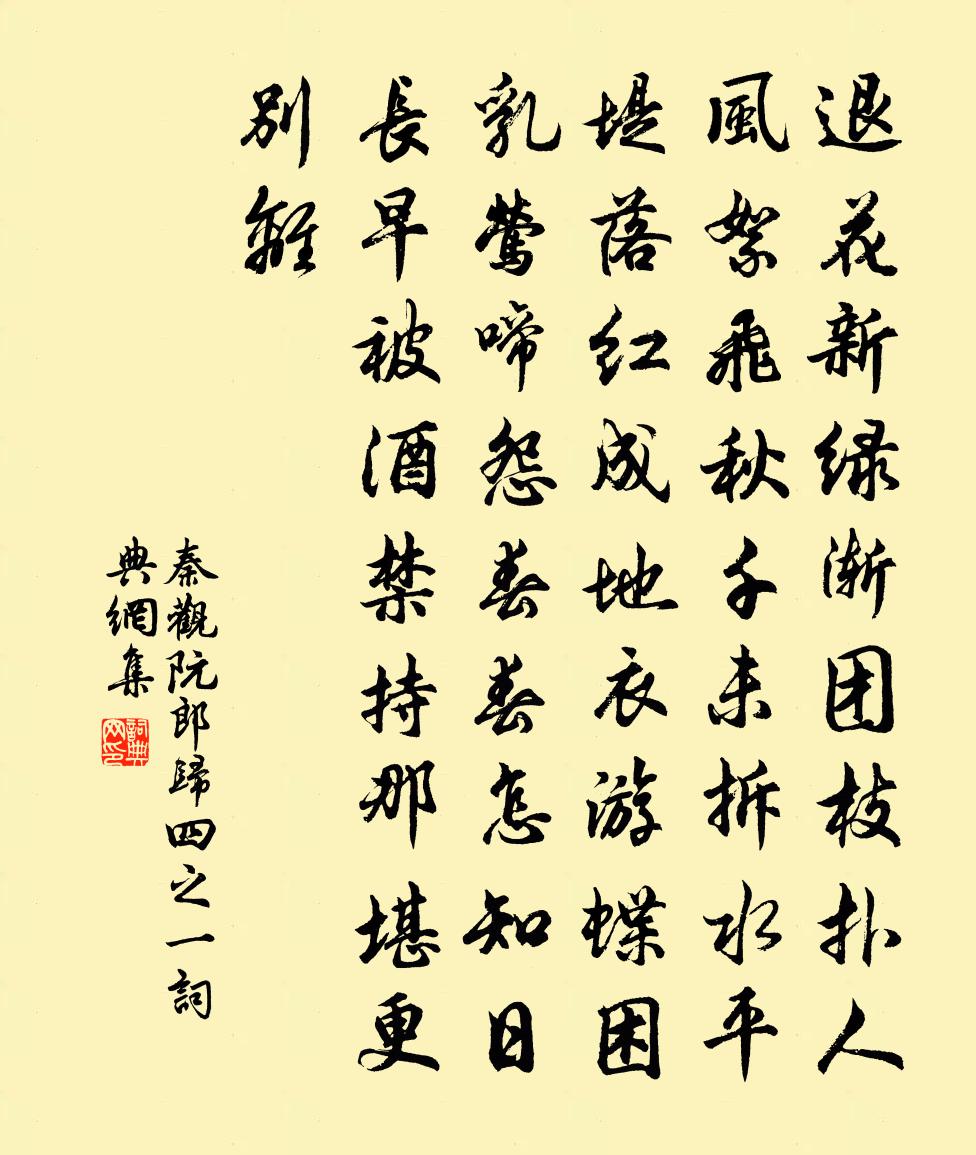 退花新绿渐团枝扑人
風絮飛秋千未拆水平
堤落红成地衣游蝶困
乳鶯啼怨春春怎知日
長早被酒禁持那堪更
别離
秦觀阮郎歸四之一詞
典網集
詞典
网印